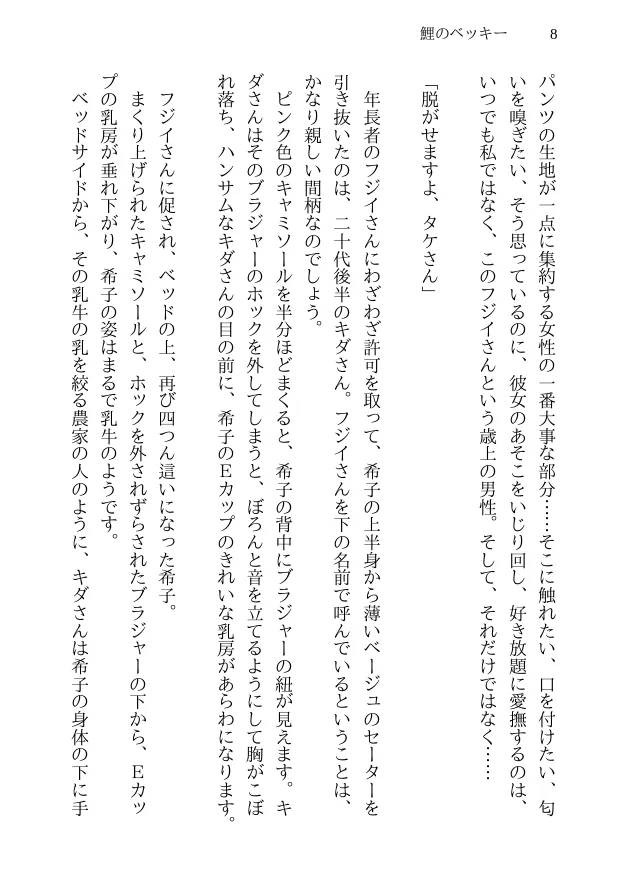 鯉のベッキー 8
パンツの生地が一点に集約する女性の一番大事な部分……そこに触れたい、口を付けたい、匂
いを嗅ぎたい、そう思っているのに、彼女のあそこをいじり回し、好き放題に愛撫するのは、
いつでも私ではなく、このフジイさんという歳上の男性。そして、それだけではなく……
「脱がせますよ、タケさん」
年長者のフジイさんにわざわざ許可を取って、希子の上半身から薄いベージュのセーターを
引き抜いたのは、二十代後半のキダさん。フジイさんを下の名前で呼んでいるということは、
かなり親しい間柄なのでしょう。
ピンク色のキャミソールを半分ほどまくると、希子の背中にブラジャーの紐が見えます。キ
ダさんはそのブラジャーのホックを外してしまうと、ぼろんと音を立てるようにして胸がこぼ
れ落ち、ハンサムなキダさんの目の前に、希子のＥカップのきれいな乳房があらわになります。
フジイさんに促され、ベッドの上、再び四つん這いになった希子。
まくり上げられたキャミソールと、ホックを外されずらされたブラジャーの下から、Ｅカッ
プの乳房が垂れ下がり、希子の姿はまるで乳牛のようです。
ベッドサイドから、その乳牛の乳を絞る農家の人のように、キダさんは希子の身体の下に手